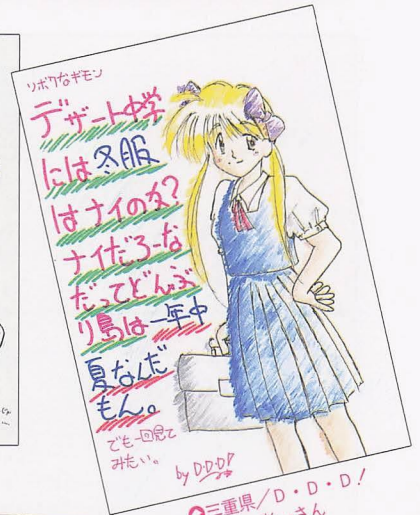 ソボクなギモン
デザート中学
には冬服
はナイのか?
ナイだろーな
だってどんぶ
り島は一年中
夏なんだ
もん。
でも一回見て
みたい。
by D・D・D!
三重県/D・D・D!
さん